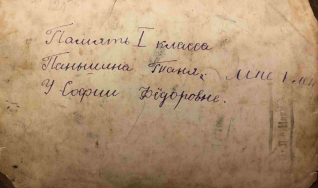 Память I класса
Паньшина Таня.
У Софии Фёдоровне.